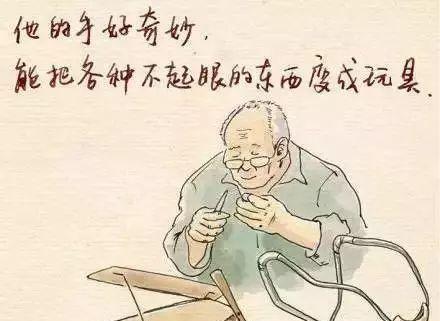 他的手好奇妙，
能把各种不起眼的东西变成玩具.